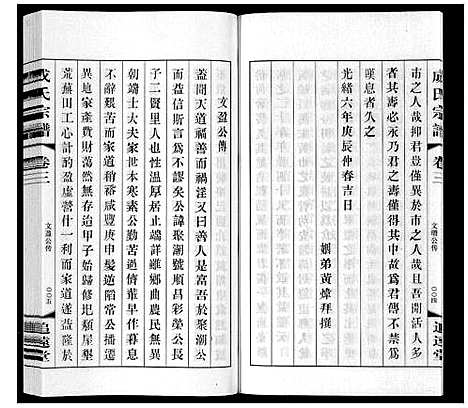 市之人哉抑君豈僅異於市之人
者其壽必永乃君之壽僅得其中故為君傳不禁為
嘆息者久之
光緒六年庚辰仲春吉日
姻弟黄煒拜撰
氏宗譜 卷三
公传
〇〇四
追遠堂
文盈公傳
蓋聞天道福善而禍淫又曰善人是富吾於聚潮公
而益信斯言為不謬矣公諱聚潮號順昌彩榮公長
子一里人也性温厚居止端詳雖鄉曲農民無異
朝端士大夫也世本寒素公偕弟早作暮息
不辭艱苦而家道稍裕咸豐庚申髮逆陷常公
異地家產費財蕩然無存迨甲子始歸修圯頹屋墾
荒蕪田工心計酌盈虛營什一利而家道遂益隆於
成氏宗譜 卷三
文盈公传
〇〇五
追遠堂